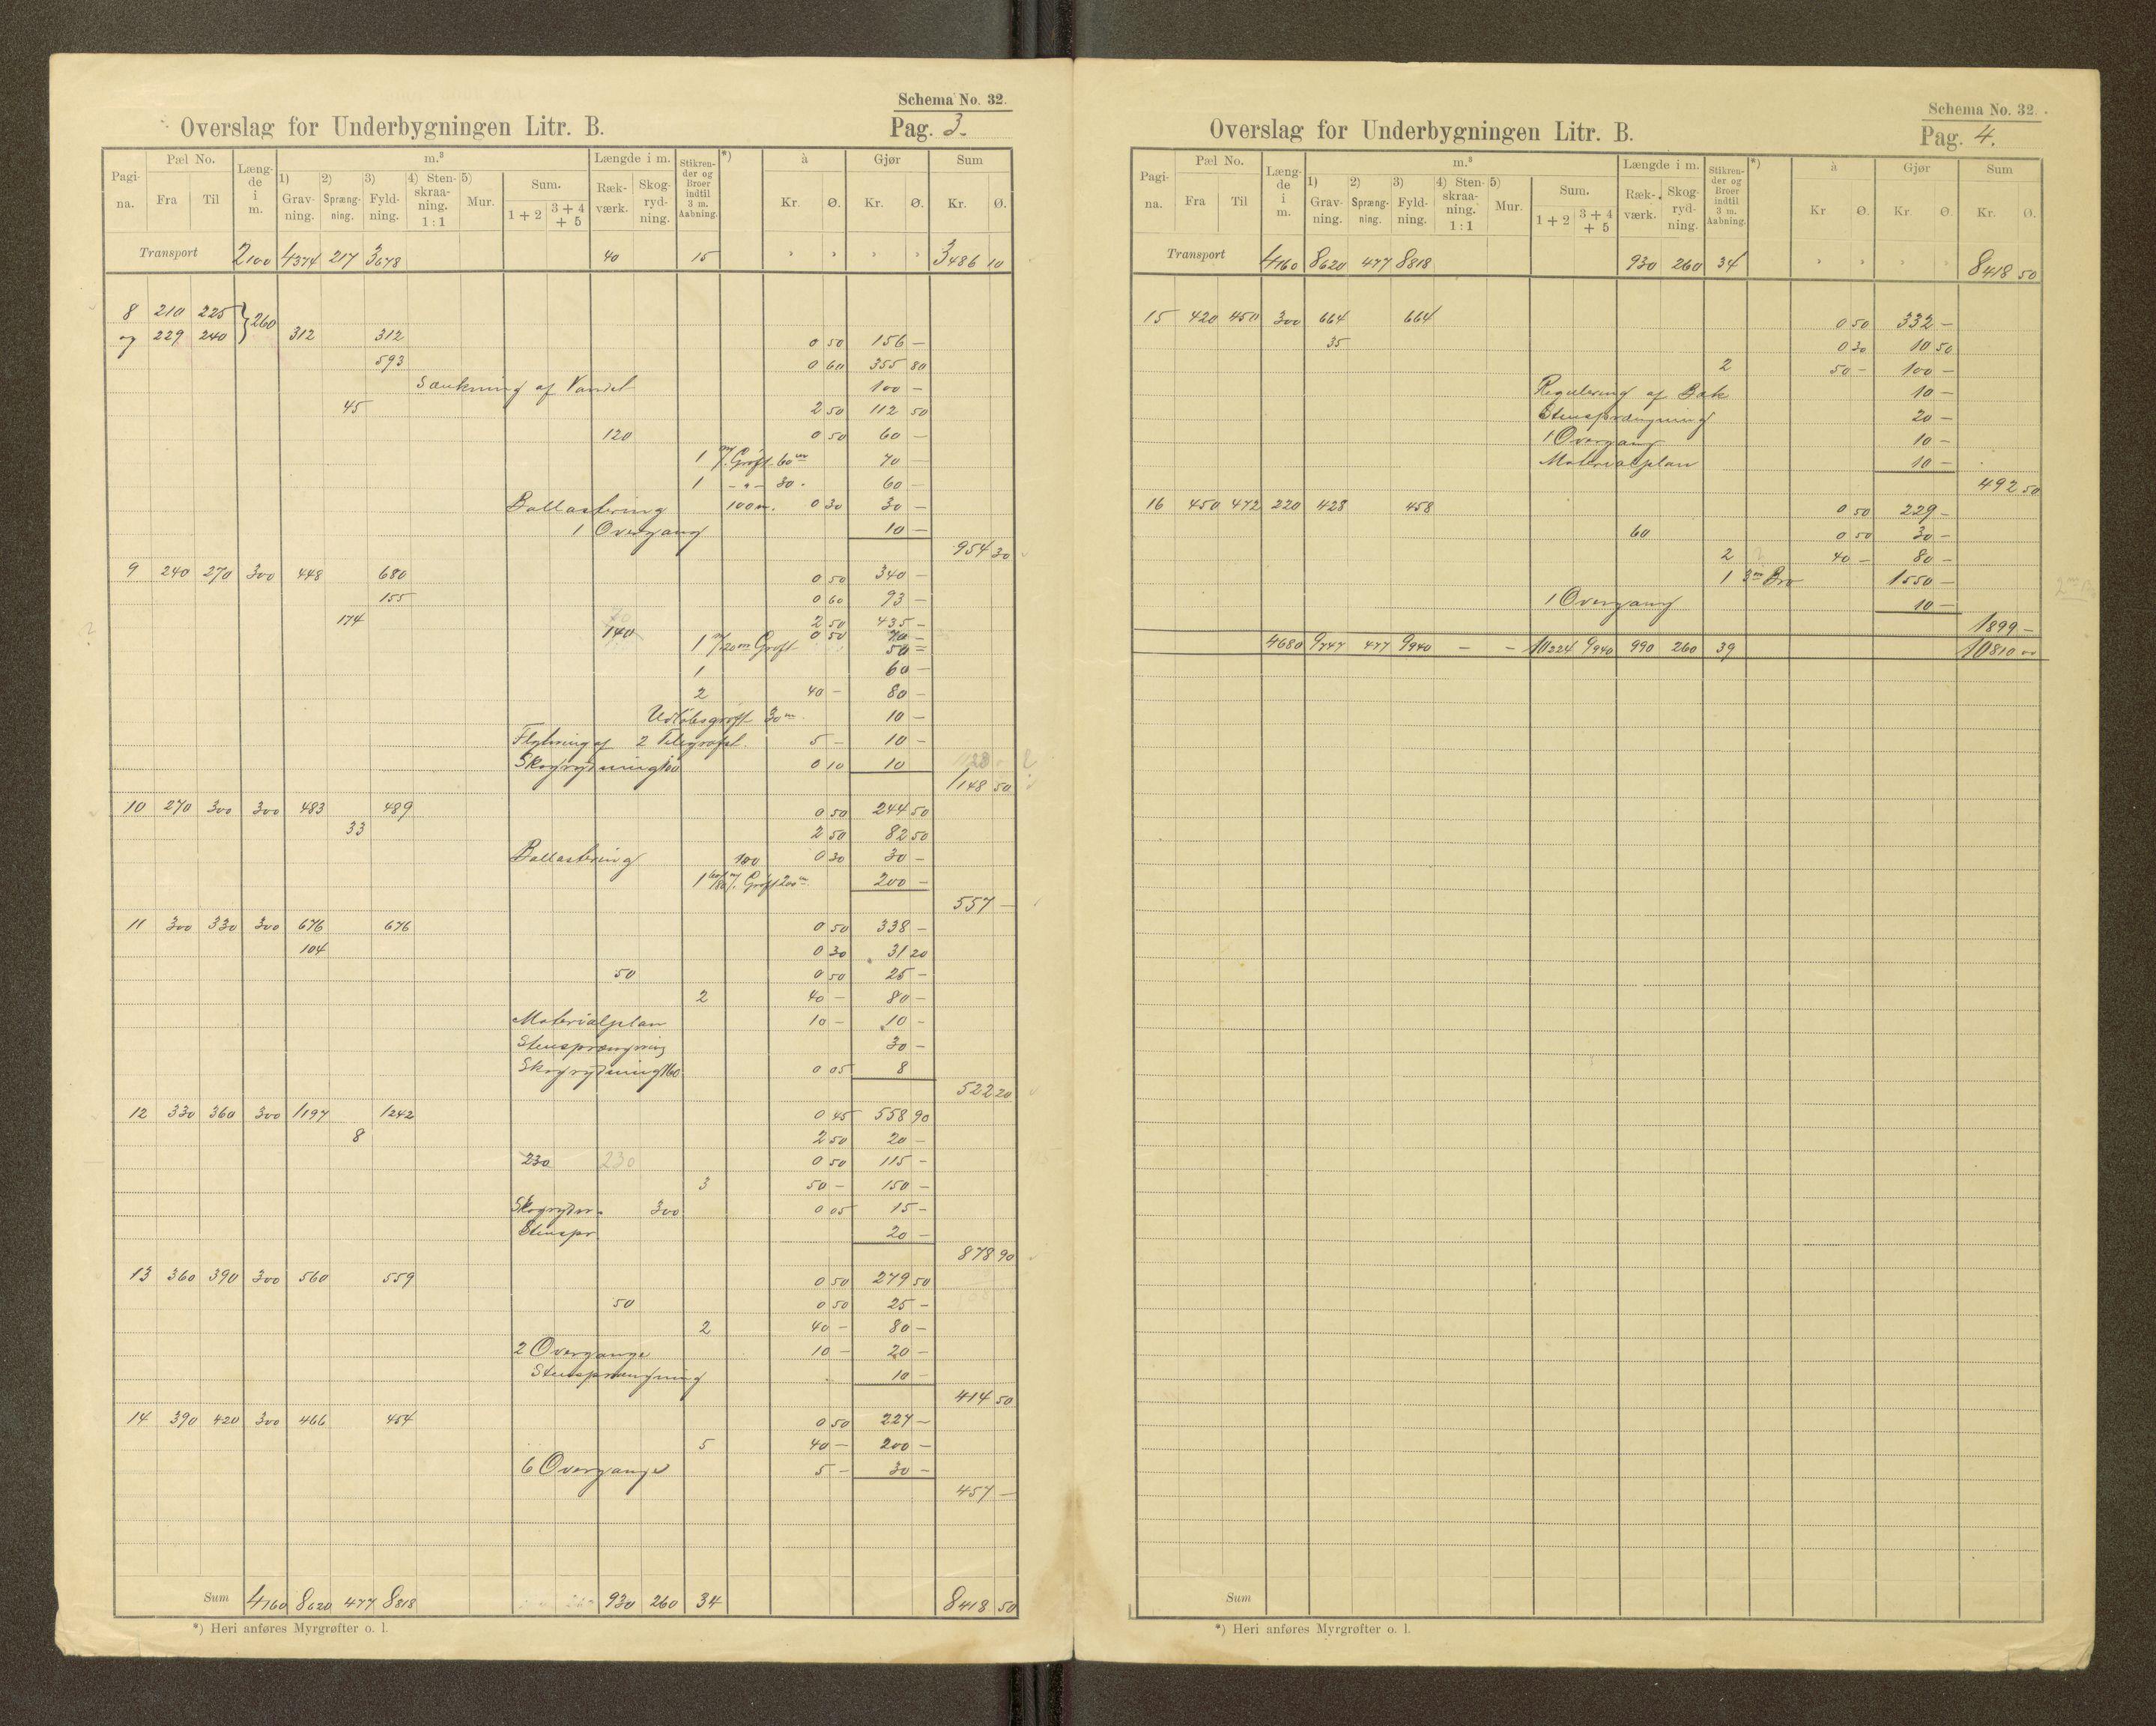 Schema No. 32.
Overslag for Underbygningen Litr. B. Pag. 3.
Pagina. Pæl No. Fra Til Længde i m. m.³ 1) Gravning. 2) Sprængning. 3) Fyldning. 4) Stenskraaning. 1:1 5) Mur. Sum. 1 + 2 3 + 4 + 5 Længde i m. Rækværk. Skogrydning. Stikrender og Broer indtil 3 m. Aabning. *) à Kr. Ø. Gjør Kr. Ø. Sum Kr. Ø.
Transport 2100 4374 217 3678 40 15 " " " " 3486 10
8 210 225 } 260
og 229 240 312 312 0 50 156 —
593 0 60 355 80
Sænkning af Vandet 100 —
45 2 50 112 50
120 0 50 60 —
1 m/. Grøft 60 m 70 —
1 - " - 30 . 60 —
Ballastering 100 m. 0 30 30 —
1 Overgang 10 —
954 30
9 240 270 300 448 680 0 50 340 —
155 0 60 93 —
174 2 50 435 —
140 0 50 70 —
1 m/20 m Grøft 50 =
1 60 —
2 40 — 80 —
Udløbsgrøft 30 m 10 —
Flytning af 2 Telegrafst. 5 — 10 —
Skogrydning 100 0 10 10
1148 50
10 270 300 300 483 489 0 50 244 50
33 2 50 82 50
Ballastering 100 0 30 30 —
1 Grøft 200 m 200 —
557 —
11 300 330 300 676 676 0 50 338 —
104 0 30 31 20
50 0 50 25 —
2 40 — 80 —
Materialplan 10 — 10 —
Stensprængning 30 —
Skogrydning 160 0 05 8
522 20
12 330 360 300 1197 1242 0 45 558 90
8 2 50 20 —
230 230 0 50 115 —
3 50 — 150 —
Skogrydn. 300 0 05 15 —
Stenspr. 20 —
878 90
13 360 390 300 560 559 0 50 279 50
50 0 50 25 —
2 40 — 80 —
2 Overgange 10 — 20 —
Stensprængning 10 —
414 50
14 390 420 300 466 454 0 50 227 —
5 40 — 200 —
6 Overgange 5 — 30 —
457 —
Sum 4160 8620 477 8818 930 260 34 8418 50
*) Heri anføres Myrgrøfter o. l.
Schema No. 32.
Overslag for Underbygningen Litr. B. Pag. 4.
Pagina. Pæl No. Fra Til Længde i m. m.³ 1) Gravning. 2) Sprængning. 3) Fyldning. 4) Stenskraaning. 1:1 5) Mur. Sum. 1 + 2 3 + 4 + 5 Længde i m. Rækværk. Skogrydning. Stikrender og Broer indtil 3 m. Aabning. *) à Kr Ø. Gjør Kr. Ø. Sum Kr. Ø.
Transport 4160 8620 477 8818 930 260 34 " " " " 8418 50
15 420 450 300 664 664 0 50 332 —
35 0 30 10 50
2 50 — 100 —
Regulering af Bæk 10 —
Stensprængning 20 —
1 Overgang 10 —
Materialplan 10 —
492 50
16 450 472 220 428 458 0 50 229 —
60 0 50 30 —
2 40 — 80 —
1 3 m Bro 1550 —
1 Overgang 10 —
1899 —
4680 9747 477 9940 — — 10224 9940 990 260 39 10810 00
Sum
*) Heri anføres Myrgrøfter o. l.